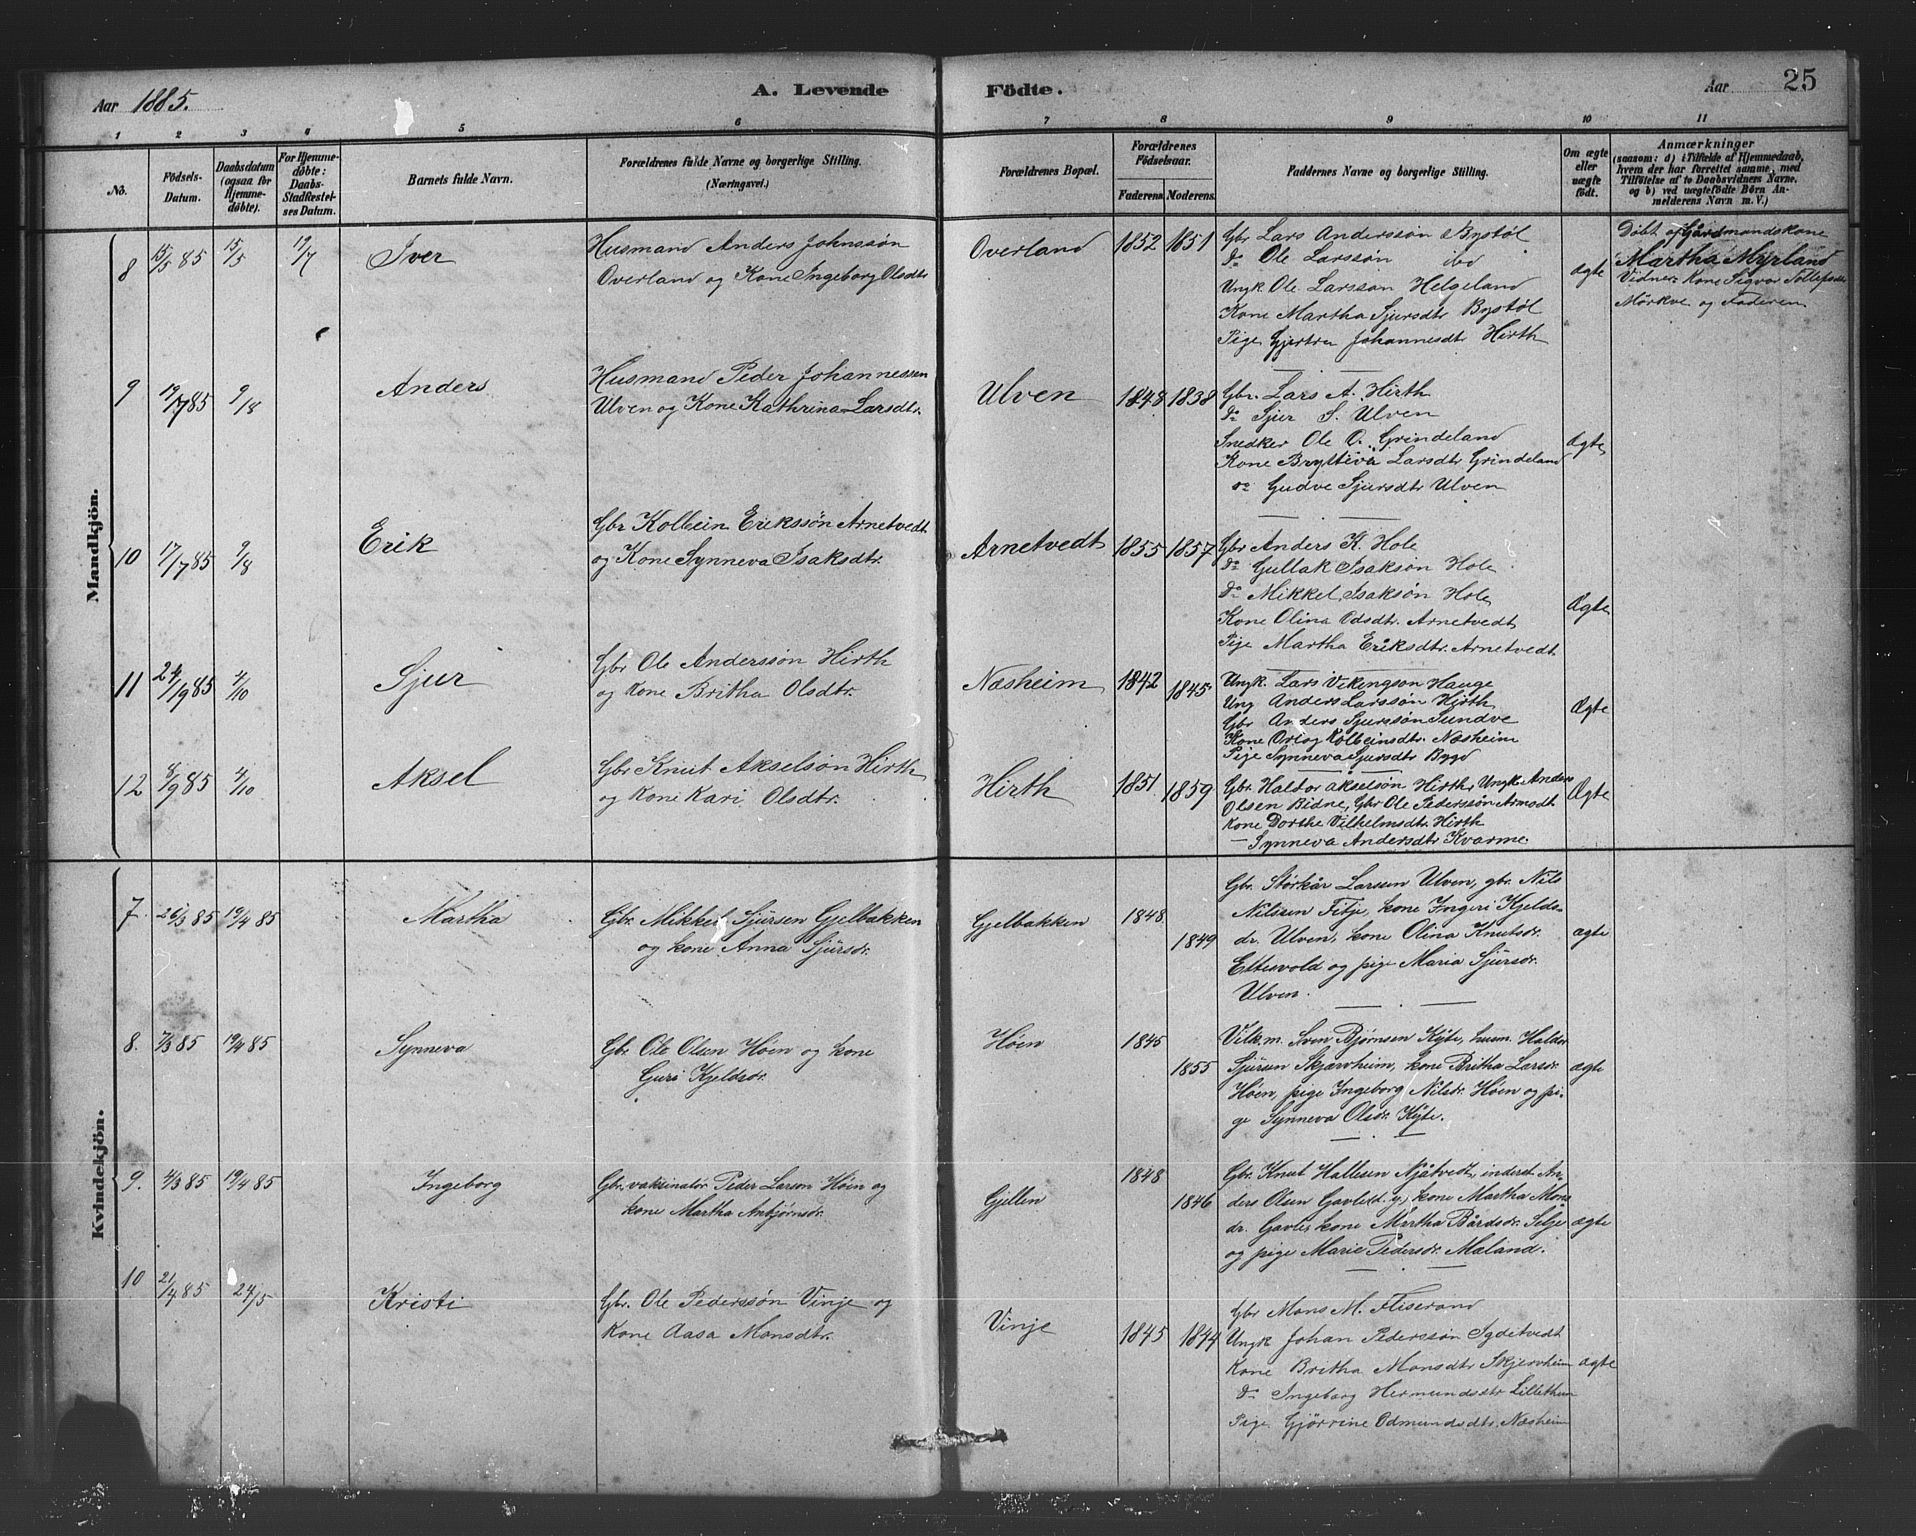 Aar 1885.
A. Levende
Födte.
Aar
25
1 2 3 4 5 6 7 8 9 10 11
No.
Födsels-
Datum.
Daabsdatum
(ogsaa for
Hjemme-
döbte).
For Hjemme-
döbte:
Daabs-
Stadfæstel-
ses Datum.
Barnets fulde Navn.
Forældrenes fulde Navne og borgerlige Stilling.
(Næringsvei.)
Forældrenes Bopæl.
Forældrenes
Födselsaar.
Faderens
Moderens.
Faddernes Navne og borgerlige Stilling.
Om ægte
eller
uægte
födt.
Anmærkninger
(saasom: a) i Tilfælde af Hjemmedaab,
hvem der har forrettet samme, med
Tilföielse af to Daabsvidners Navne,
og b) ved uægtefödte Börn An-
melderens Navn m. V.)
Mandkjön.
8 15/5 85 15/5 19/7 Iver
Husmand Anders Johnssøn
Overland og Kone Ingeborg Olsdtr
Overland 1852 1851
Gbr Lars Anderssøn Bystøl
do Ole Larssøn do
Ungk. Ole Larssøn Helgeland
Kone Martha Sjursdtr Bystøl
Pige Gjertru Johannesdtr Hirth
ægte
Døbt af Gårdmandskone
Martha Myrland
Vidner: Kone Sigvor Tollefsdtr
Mørkve og Faderen
9 19/7 85 9/8 Anders
Husmand Peder Johannessen
Ulven og Kone Kathrina Larsdtr.
Ulven 1848 1838
Gbr. Lars A. Hirth
do Sjur S. Ulven
Snedker Ole O. Grindeland
Kone Bryttiva Larsdtr Grindeland
do Gudve Sjursdtr Ulven
Ægte
10 17/7 85 9/8 Erik
Gbr Kolbein Erikssøn Arnetvedt
og Kone Synneva Isaksdtr.
Arnetvedt 1855 1857
Gbr Anders K. Hole
do Gullak Isaksøn Hole
do Mikkel Isaksøn Hole
Kone Olina Odsdtr. Arnetvedt
Pige Martha Eriksdtr. Arnetvedt
Ægte
11 24/9 85 4/10 Sjur
Gbr Ole Anderssøn Hirth
og Kone Britha Olsdtr.
Næsheim 1842 1845
Ungk. Lars Vikingson Hauge
Ung Anders Larssøn Hirth
Gbr Anders Sjurssøn Sundve
Kone Kolbeinsdtr. Næsheim
Pige Synneva Sjursdtr Bygd
Ægte
12 8/9 85 4/10 Aksel
Gbr Knut Akselsøn Hirth
og Kone Kari Olsdtr.
Hirth 1851 1859
Gbr. Haldor Akselsøn Hirth, Ungk. Anders
Olsen Bidne, Gbr Ole Pederssøn
Kone Dorthe Vilhelmsdtr Hirth
— Synneva Andersdtr Kvarme
Ægte
Kvindekjön.
7. 26/3 85 19/4 85 Martha
Gbr. Mikkel Sjursen Gjelbakken
og kone Anna Sjursdr.
Gjelbakken 1848
1849
Gbr. Størkår Larssen Ulven, gbr. Nils
Nilssen Fitje, kone Ingeri Kjelds-
dr. Ulven, kone Olina Knutsdr.
Ettesvold og pige Maria Sjursdr.
Ulven.
ægte
8. 7/3 85 19/4 85 Synneva
Gbr. Ole Olsen Høen og kone
Guri Kjeldsdr.
Høen 1845
1855
Vilk.m. Sven Bjørnsen Kyte, husm. Haldor
Sjursen Skjærvheim, kone Britha Larsdr.
Høen, pige Ingeborg Nilsdr. Høen og pi-
ge Synneva Olsdr. Kyte.
ægte
9. 4/3 85 19/4 85 Ingeborg
Gbr. vaksinatør Peder Larson Høen og
kone Martha Anbjørnsdr.
Gjellen
1848
1846
Gbr. Knut Hallesen Njåtvedt, inderst An-
ders Olsen kone Martha Mons
dr. Gavle, kone Martha Bårdsdr. Selje
og pige Marie Pedersdr. Mæland.
ægte
10 21/4 85 24/5 Kristi
Gbr. Ole Pederssøn Vinje og
Kone Aasa Monsdtr.
Vinje 1845 1844
Gbr Mons M. Fliserand
Ungk Johan Pederssøn Igdetvedt
Kone Britha Monsdtr Skjervheim
do Ingeborg Hermundsdtr Lillethun
Pige Gjørrine Odmundsdtr. Næsheim
ægte